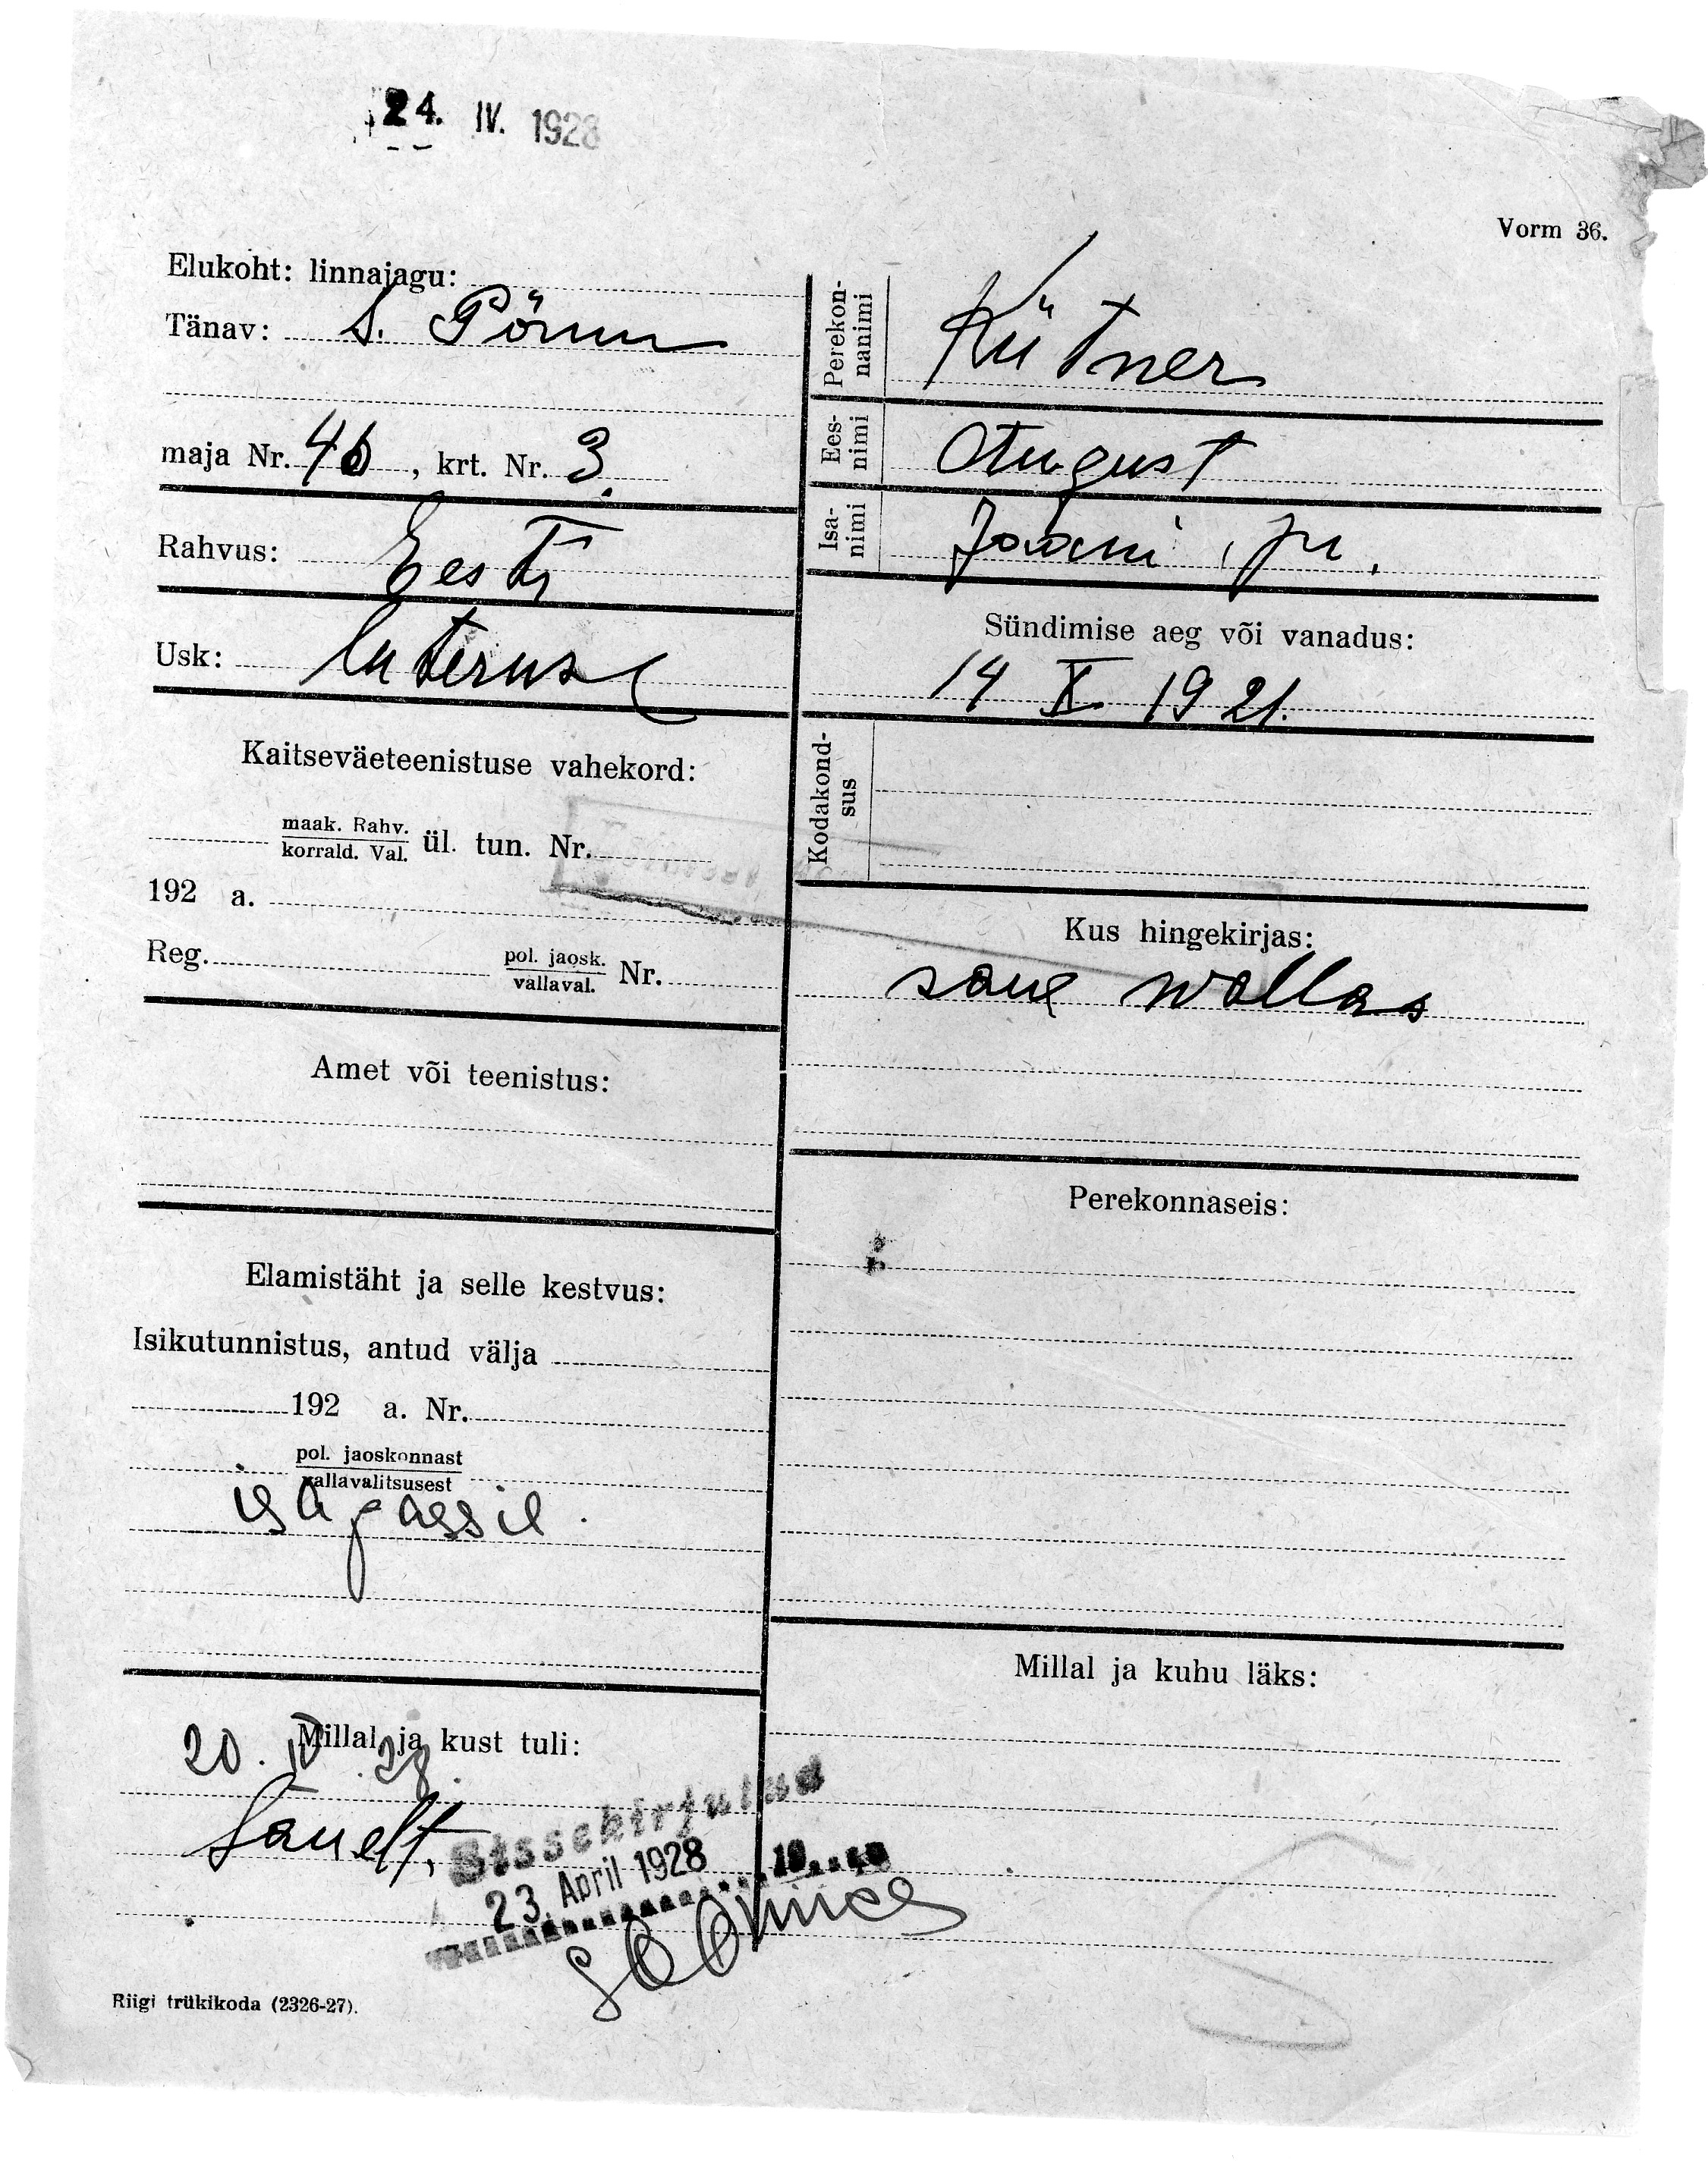 24. IV. 1928
Vorm 36.
Elukoht: linnajagu:
Tänav: S. Pärnu
maja Nr. 46, krt. Nr. 3.
Rahvus: Eesti
Usk: luterus
Kaitseväeteenistuse vahekord:
maak. Rahv.
korrald. Val. ül. tun. Nr.
192 a.
Reg. pol. jaosk.
vallaval. Nr.
Amet või teenistus:
Elamistäht ja selle kestvus:
Isikutunnistus, antud välja
192 a. Nr.
pol. jaoskonnast
vallavalitsusest
isa passil.
Millal ja kust tuli:
20. IV. 28.
Sauelt.
Sissekirjutud
23. April 1928
Riigi trükikoda (2326-27).
Perekon-
nanimi
Kütner
Ees-
nimi
August
Isa-
nimi
Jaani p.
Sündimise aeg või vanadus:
14 X 1921.
Kodakond-
sus
Kus hingekirjas:
saue wallas
Perekonnaseis:
Millal ja kuhu läks: